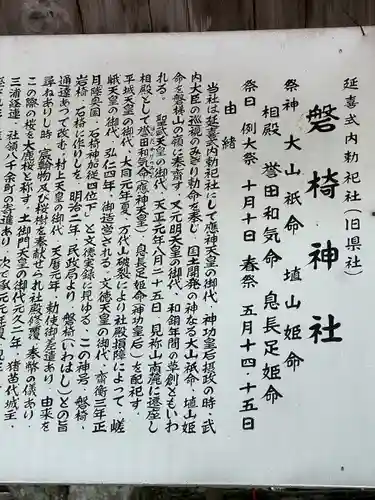 延喜式内勅祀社(旧県社)
磐椅神社
祭神 大山祇命 埴山姫命
相殿 誉田和気命 息長足姫命
祭日 例大祭 十月十日 春祭 五月十四・十五日
由緒
当社は延喜式内勅祀社にして應神天皇の御代、神功皇后摂政の時、武
内大臣の巡視のみぎり勅命を奉じ、国土開発の神なる大山祇命・埴山姫
命を磐梯山の嶺に奉斎す。又元明天皇の御代、和銅年間の草創ともいわ
れる。 聖武天皇の御代、天正元年八月二十五日、見祢山南麓に遷座し
相殿として誉田和気命(應神天皇)息長足姫命(神功皇后)を配祀す。
平城天皇の御代、大同元年夏、万代山破裂により社殿損障によって、嵯
峨天皇の御代、弘仁四年、御造営さる。文徳天皇の御代、斎衡三年正
月陸奥国・石椅神加従四位下」と文徳実録に見ゆる。この神号、磐椅・
岩椅・石椅に作りしを、明治二年、民政局より、磐椅(いわはし)との旨
通達あって改む。村上天皇の御代、天暦元年、勅使御差遣あり、由来を
尋ねありし時、宸翰物及び桜樹を奉献せられ社殿修覆、奉幣の儀あり。
この際の桜を大鹿桜と称す。土御門天皇の御代元久二年、猪苗代城主・
三浦経連・社領八千余町の寄進あり、次で承元元年